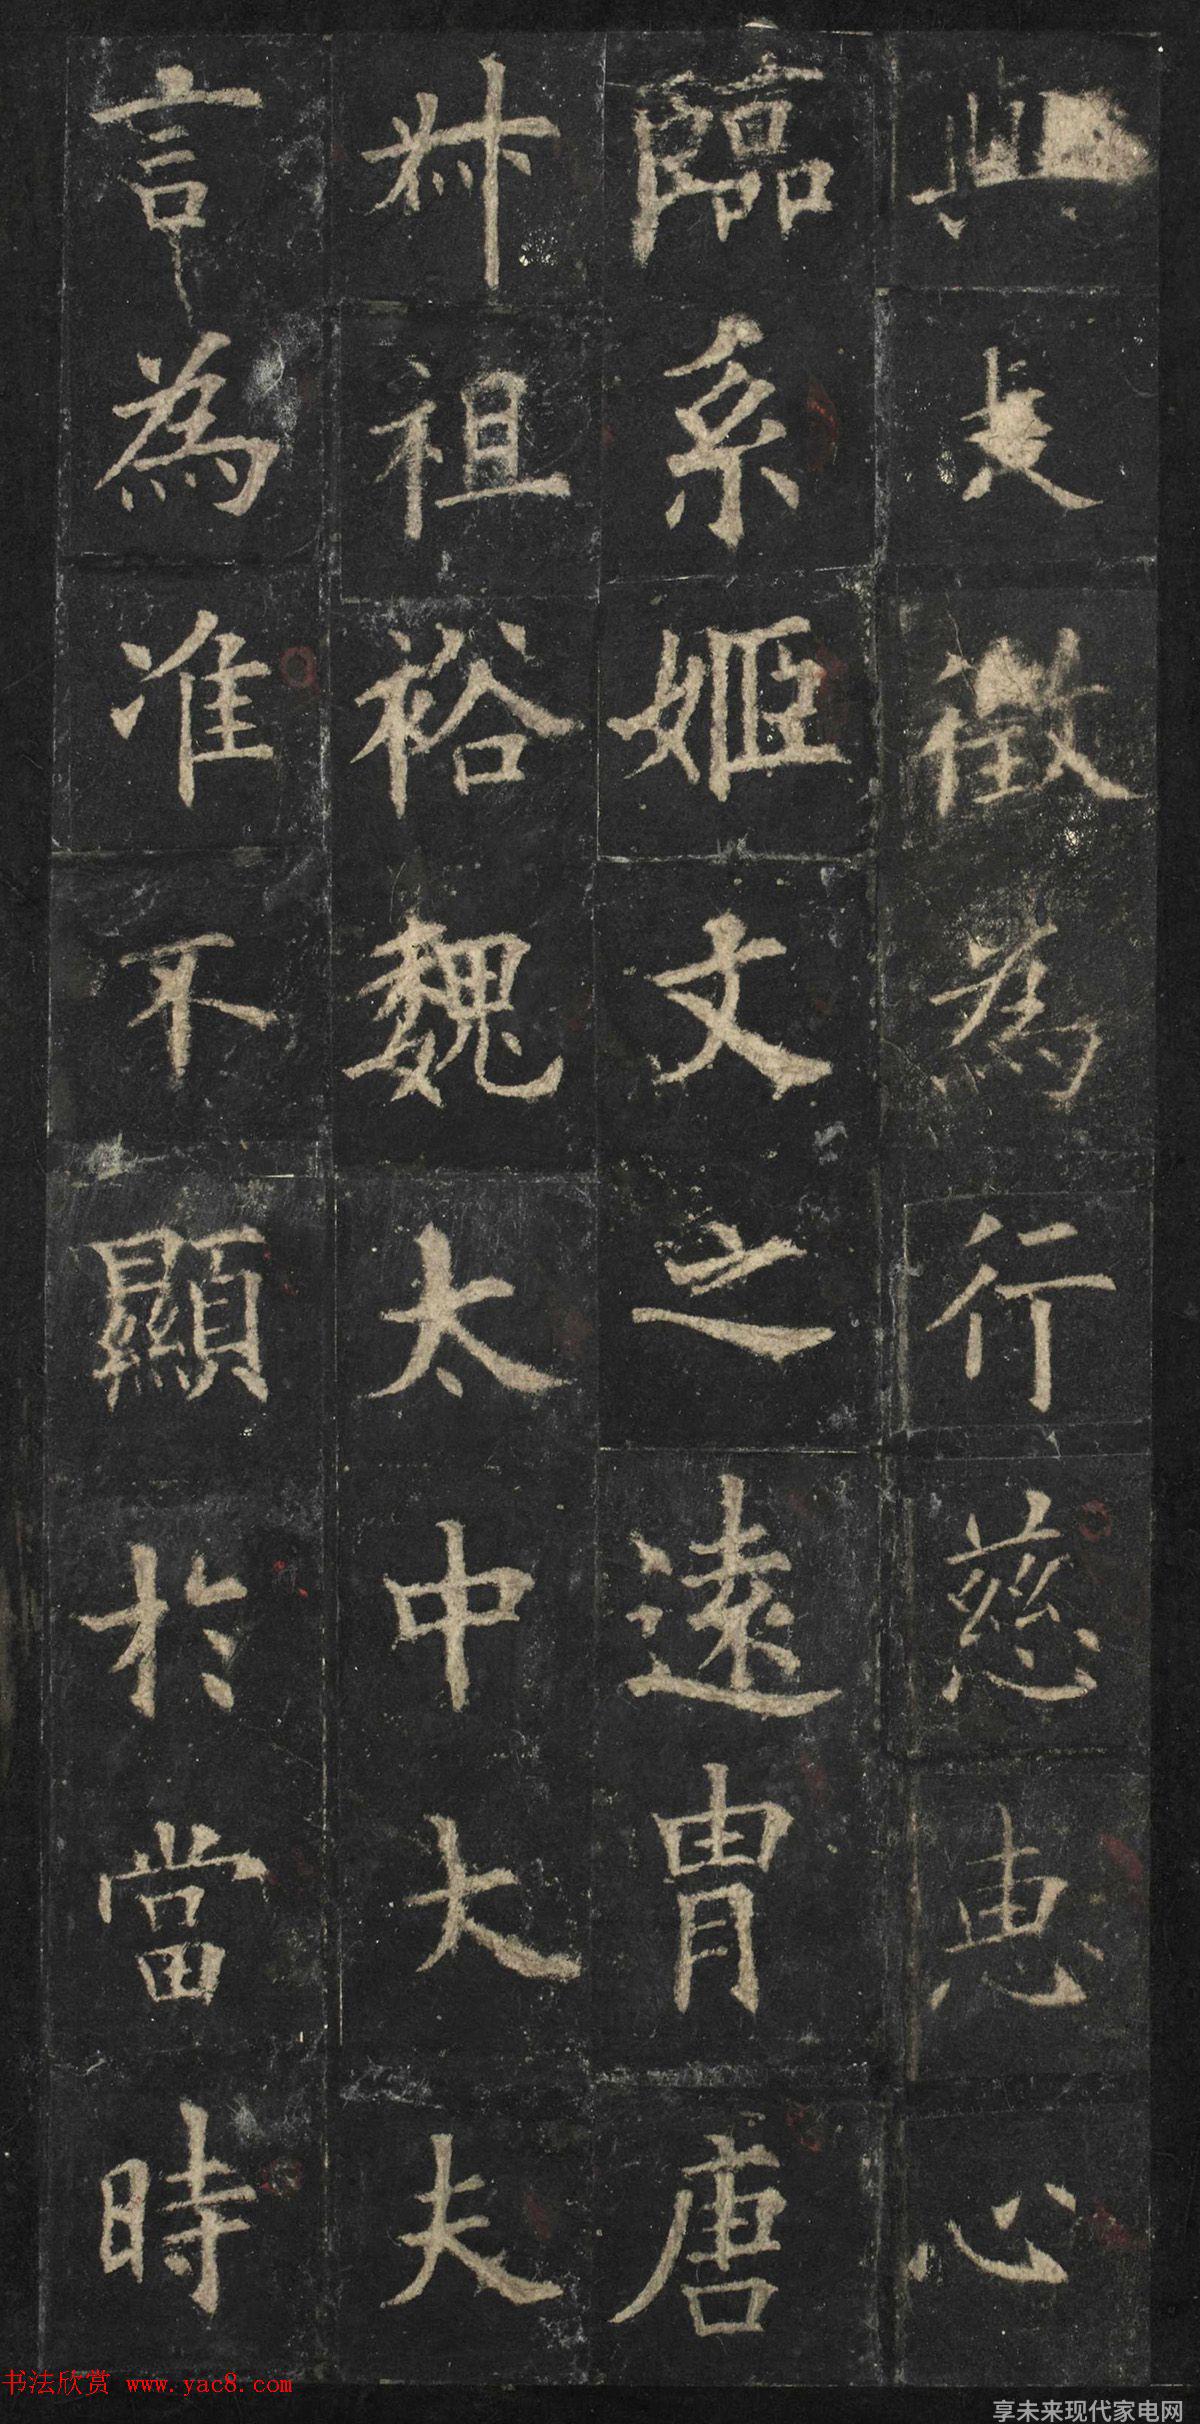 與是徵爲行慈惠心
臨系姬文之遠胄唐
叔祖裕魏太中大夫
言為准不顯於當時
书法欣赏 www.yac8.com
享未来现代家电网